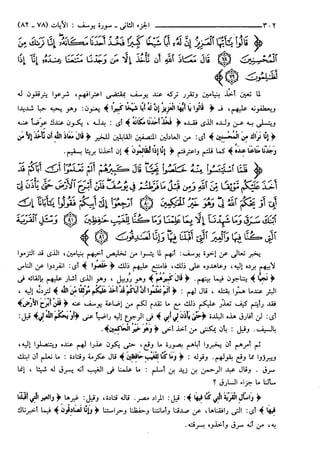 ٣٠٢ الجزء الثاني - سورة يوسف : الآيات (٧٨ - ٨٢)
﴿ قَالُوا يَٰٓأَيُّهَا ٱلْعَزِيزُ إِنَّ لَهُۥٓ أَبًا شَيْخًا كَبِيرًا فَخُذْ أَحَدَنَا مَكَانَهُۥٓ إِنَّا نَرَىٰكَ مِنَ
ٱلْمُحْسِنِينَ ۝ قَالَ مَعَاذَ ٱللَّهِ أَن نَّأْخُذَ إِلَّا مَن وَجَدْنَا مَتَٰعَنَا عِندَهُۥٓ إِنَّآ إِذًا
لَّظَٰلِمُونَ ۝ ﴾
لما تعين أخذ بنيامين وتقرر تركه عند يوسف بمقتضى اعترافهم، شرعوا يترققون له
ويعطفونه عليهم، فـ ﴿ قَالُوا يَا أَيُّهَا الْعَزِيزُ إِنَّ لَهُ أَبًا شَيْخًا كَبِيرًا ﴾ يعنون: وهو يحبه حباً شديداً
ويتسلى به عن ولده الذي فقده ﴿ فَخُذْ أَحَدَنَا مَكَانَهُ ﴾ أي : بدله ، يكون عندك عوضاً عنه
﴿ إِنَّا نَرَاكَ مِنَ الْمُحْسِنِينَ ﴾ أي: من العادلين المنصفين القابلين للخير ﴿ قَالَ مَعَاذَ اللَّهِ أَن نَّأْخُذَ إِلَّا مَن
وَجَدْنَا مَتَاعَنَا عِندَهُ ﴾ كما قلتم واعترفتم ﴿ إِنَّا إِذًا لَّظَالِمُونَ ﴾ إن أخذنا بريئاً بسقيم.
﴿ فَلَمَّا ٱسْتَيْـَٔسُوا مِنْهُ خَلَصُوا نَجِيًّا قَالَ كَبِيرُهُمْ أَلَمْ تَعْلَمُوٓا أَنَّ أَبَاكُمْ قَدْ
أَخَذَ عَلَيْكُم مَّوْثِقًا مِّنَ ٱللَّهِ وَمِن قَبْلُ مَا فَرَّطتُمْ فِى يُوسُفَ فَلَنْ أَبْرَحَ ٱلْأَرْضَ حَتَّىٰ يَأْذَنَ لِىٓ
أَبِىٓ أَوْ يَحْكُمَ ٱللَّهُ لِى وَهُوَ خَيْرُ ٱلْحَٰكِمِينَ ۝ ٱرْجِعُوٓا إِلَىٰٓ أَبِيكُمْ فَقُولُوا يَٰٓأَبَانَآ إِنَّ
ٱبْنَكَ سَرَقَ وَمَا شَهِدْنَآ إِلَّا بِمَا عَلِمْنَا وَمَا كُنَّا لِلْغَيْبِ حَٰفِظِينَ ۝ وَسْـَٔلِ ٱلْقَرْيَةَ
ٱلَّتِى كُنَّا فِيهَا وَٱلْعِيرَ ٱلَّتِىٓ أَقْبَلْنَا فِيهَا وَإِنَّا لَصَٰدِقُونَ ۝ ﴾
يخبر تعالى عن إخوة يوسف: أنهم لما يئسوا من تخليص أخيهم بنيامين، الذي قد التزموا
لأبيهم برده إليه، وعاهدوه على ذلك، فامتنع عليهم ذلك ﴿ خَلَصُوا ﴾ أي: انفردوا عن الناس
﴿ نَجِيًّا ﴾ يتناجون فيما بينهم. ﴿ قَالَ كَبِيرُهُمْ ﴾ وهو روبيل ، وهو الذي أشار عليهم بإلقائه في
البئر عندما هموا بقتله ، قال لهم : ﴿ أَلَمْ تَعْلَمُوا أَنَّ أَبَاكُمْ قَدْ أَخَذَ عَلَيْكُم مَّوْثِقًا مِّنَ اللَّهِ ﴾ لتردنّه إليه ،
فقد رأيتم كيف تعذّر عليكم ذلك مع ما تقدم لكم من إضاعة يوسف عنه ﴿ فَلَنْ أَبْرَحَ الْأَرْضَ ﴾
أي: لن أفارق هذه البلدة ﴿ حَتَّىٰ يَأْذَنَ لِي أَبِي ﴾ في الرجوع إليه راضياً عني ﴿ أَوْ يَحْكُمَ اللَّهُ لِي ﴾ قيل:
بالسيف. وقيل : بأن يمكنني من أخذ أخي ﴿ وَهُوَ خَيْرُ الْحَاكِمِينَ ﴾.
ثم أمرهم أن يخبروا أباهم بصورة ما وقع ، حتى يكون عذراً لهم عنده ويتنصلوا إليه،
ويبرؤوا مما وقع بقولهم. وقوله : ﴿ وَمَا كُنَّا لِلْغَيْبِ حَافِظِينَ ﴾ قال عكرمة وقتادة : ما نعلم أن ابنك
سرق . وقال عبد الرحمن بن زيد بن أسلم : ما علمنا في الغيب أنه يسرق له شيئا ، إنما
سألنا ما جزاء السارق ؟
﴿ وَاسْأَلِ الْقَرْيَةَ الَّتِي كُنَّا فِيهَا ﴾ قيل: المراد مصر. قاله قتادة، وقيل: غيرها ﴿ وَالْعِيرَ الَّتِي أَقْبَلْنَا
فِيهَا ﴾ أي: التي رافقناها، عن صدقنا وأمانتنا وحفظنا وحراستنا ﴿ وَإِنَّا لَصَادِقُونَ ﴾ فيما أخبرناك
به، من أنه سرق وأخذوه بسرقته.